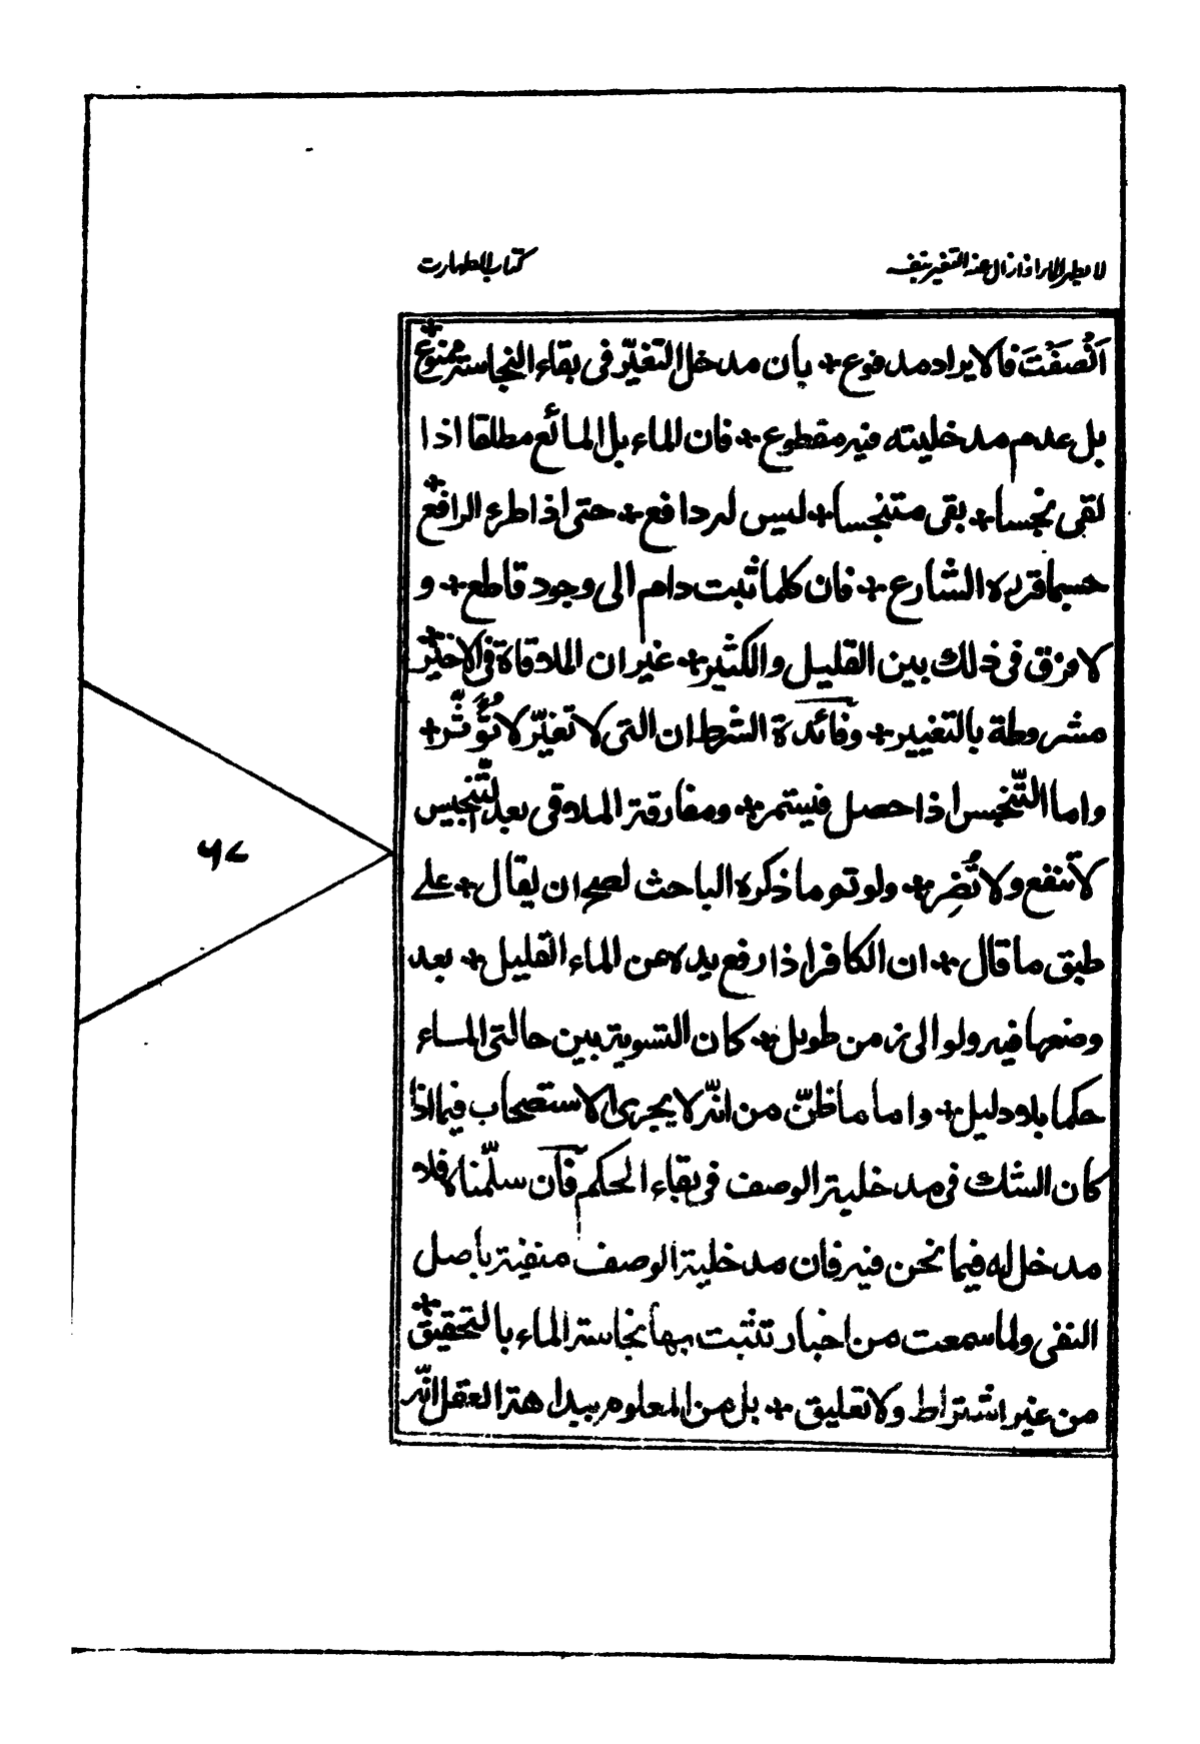 لا يطهر الماء اذا زال عنه التغير بنفسه
كتاب الطهارت
اَنْصَفْتَ فالايراد مدفوع + بأن مدخل التغيّر فى بقاء النجاسة ممنوع +
بل عدم مدخليته فيه مقطوع + فان الماء بل المائع مطلقا اذا
لقى نجسا + بقى متنجسا + ليس له دافع + حتى اذا طرء الرافع +
حسبما قرره الشارع + فان كلما ثبت دام الى وجود قاطع + و
لا فرق فى ذلك بين القليل والكثير + غير ان الملاقاة فى الاخير +
مشروطة بالتغيير + وفائدة الشرط ان التى لا تغيّر لا تُؤَثّر +
واما التّنجس اذا حصل فيستمر + ومفارقة الملاقى بعد التّنجيس
لا تنفع ولا تُضِر + ولو تم ما ذكره الباحث لصح ان يقال + على
طبق ما قال + ان الكافر اذا رفع يده عن الماء القليل + بعد
وضعها فيه ولو الى زمن طويل + كان التسوية بين حالتى الماء
حكما بلا دليل + واما ما ظنّ من انّه لا يجرى الاستصحاب فيما اذا
كان الشك فى مدخلية الوصف فى بقاء الحكم فان سلّمناه فلا
مدخل له فيما نحن فيه فان مدخلية الوصف منفية باصل
النفى ولما سمعت من اخبار تثبت بها نجاسة الماء بالتحقيق +
من غير اشتراط ولا تعليق + بل من المعلوم ببداهة العقل انّه
٦٧